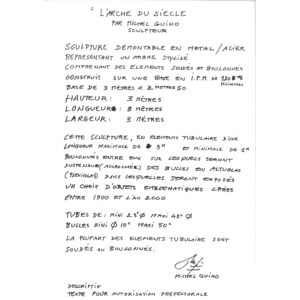 L'ARCHE DU SIECLE
PAR MICHEL GUINO
SCULPTEUR
SCULPTURE DEMONTABLE EN METAL/ACIER
REPRESENTANT UN ARBRE STYLISÉ
COMPRENANT DES ELEMENTS SOUDÉS ET BOULONNES
CONSTRUIT SUR UNE BASE EN I.P.N DE
MINIMUM
BASE DE 3 METRES X 2 METRES 50
HAUTEUR: 3 MÈTRES
LONGUEUR: 8 MÈTRES
LARGEUR: 3 MÈTRES
CETTE SCULPTURE, EN ELEMENTS TUBULAIRE D'UNE
LONGUEUR MAXIMALE DE 3M ET MINIMALE DE 1M
BOULONNÉES ENTRE EUX SUR LESQUELS SERONT
(ACCROCHÉES) DES BULLES EN ALTUGLAS
DANS LESQUELLES SERONT EXPOSÉS
UN CHOIX D'OBJETS EMBLEMATIQUES CRÉES
ENTRE 1900 ET L'AN 2000
TUBES DE: MINI 28 Ø MAXI 48 Ø
BULLES MINI Ø 10" MAXI 50"
LA PLUPART DES ELEMENTS TUBULAIRE SONT
SOUDÉS OU BOULONNÉS.
MICHEL GUINO
DESCRIPTIF
TEXTE POUR AUTORISATION PREFECTORALE